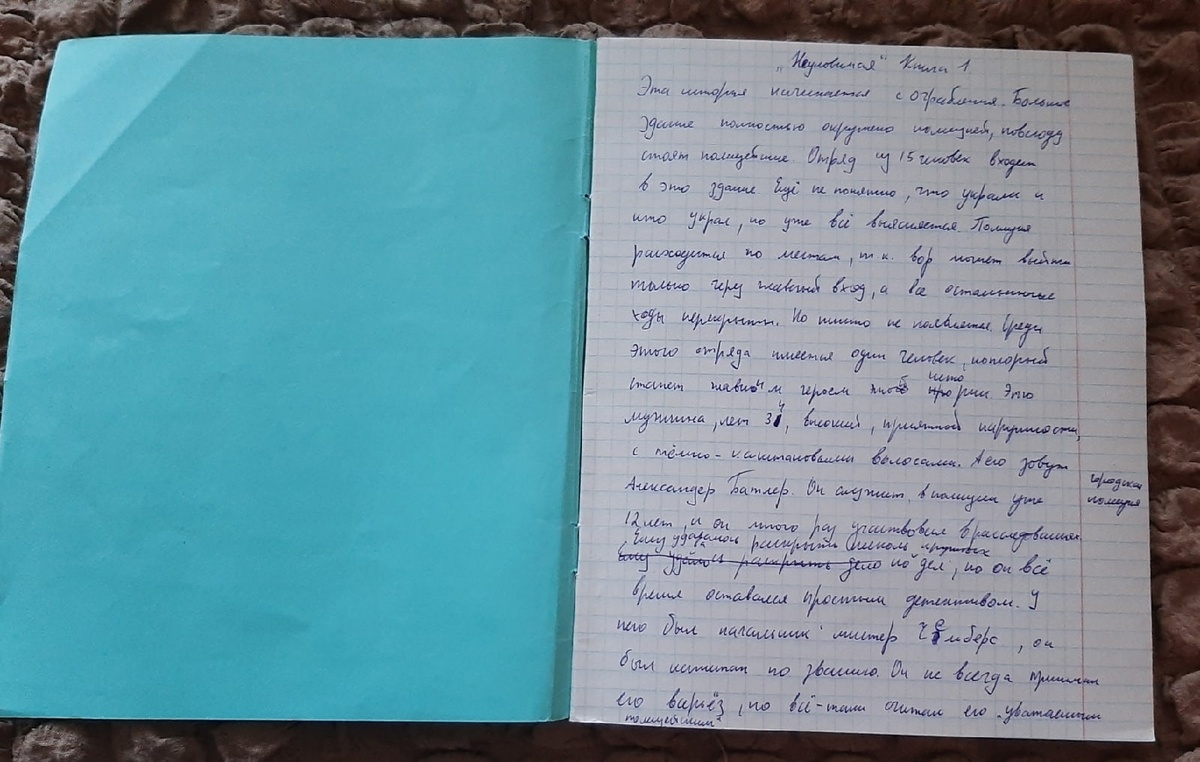 „Неуловимая“ Книга 1.
Эта история начинается с ограбления. Большое
здание полностью окружено полицией, повсюду
стоят полицейские. Отряд из 15 человек входит
в это здание. Ещё не понятно, что украли и
кто украл, но уже всё выясняется. Полиция
расходится по местам, т.к. вор может выйти
только через главный вход, а все остальные
ходы перекрыты. Но никто не появляется. Среди
этого отряда имеется один человек, который
станет главным героем этой истории. Это
мужчина, лет 34, высокий, приятной наружности,
с тёмно-каштановыми волосами. А его зовут
Александер Батлер. Он служит в полиции уже
городская
полиция
12 лет, и он много раз участвовал в расследованиях.
Ему удавалось раскрыть несколько крупных
ему удалось раскрыть дело дел, но он всё
время оставался простым детективом. У
него был начальник мистер Чемберс, он
был капитан по званию. Он не всегда принимал
его всерьёз, но всё-таки считал его уважаемым
полицейским